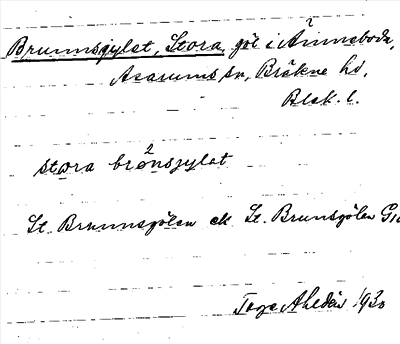 Brunnsgylet, Stora, göl i Ånneboda,
Asarums sn, Bräkne hd,
Blek. l.
stora brönsgylet
St. Brunnsgölen ek St. Brunsgölen
Tage Ahldén 1930